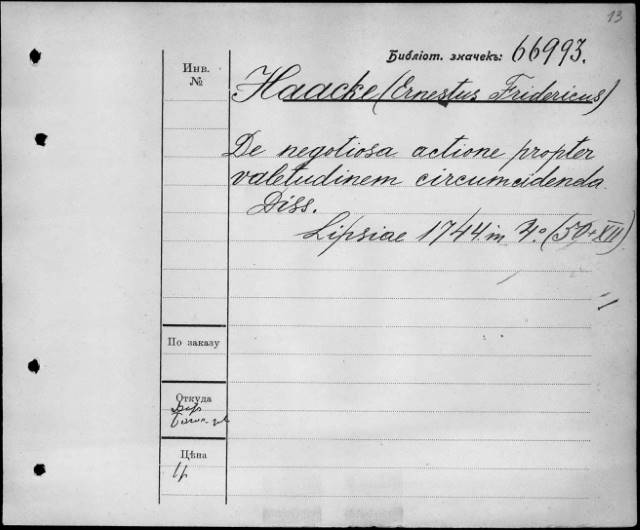 13
Библіот. значекъ: 66993.
Инв.
№
Haacke (Ernestus Fridericus)
De negotiosa actione propter
valetudinem circumcidenda.
Diss.
Lipsiae 1744 in 4.° (50+XII)
По заказу
Откуда
Цѣна